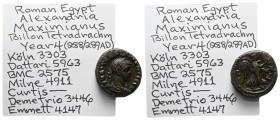 Roman Egypt
Alexandria
Maximianus
Billon Tetradrachm
Year 4 (288/289AD)
Köln 3303
Dattari 5963
BMC 2575
Milne 4911
Curtis
Demetrio 3446
Emmett 4147
Roman Egypt
Alexandria
Maximianus
Billon Tetradrachm
Year 4 (288/289AD)
Köln 3303
Dattari 5963
BMC 2575
Milne 4911
Curtis
Demetrio 3446
Emmett 4147